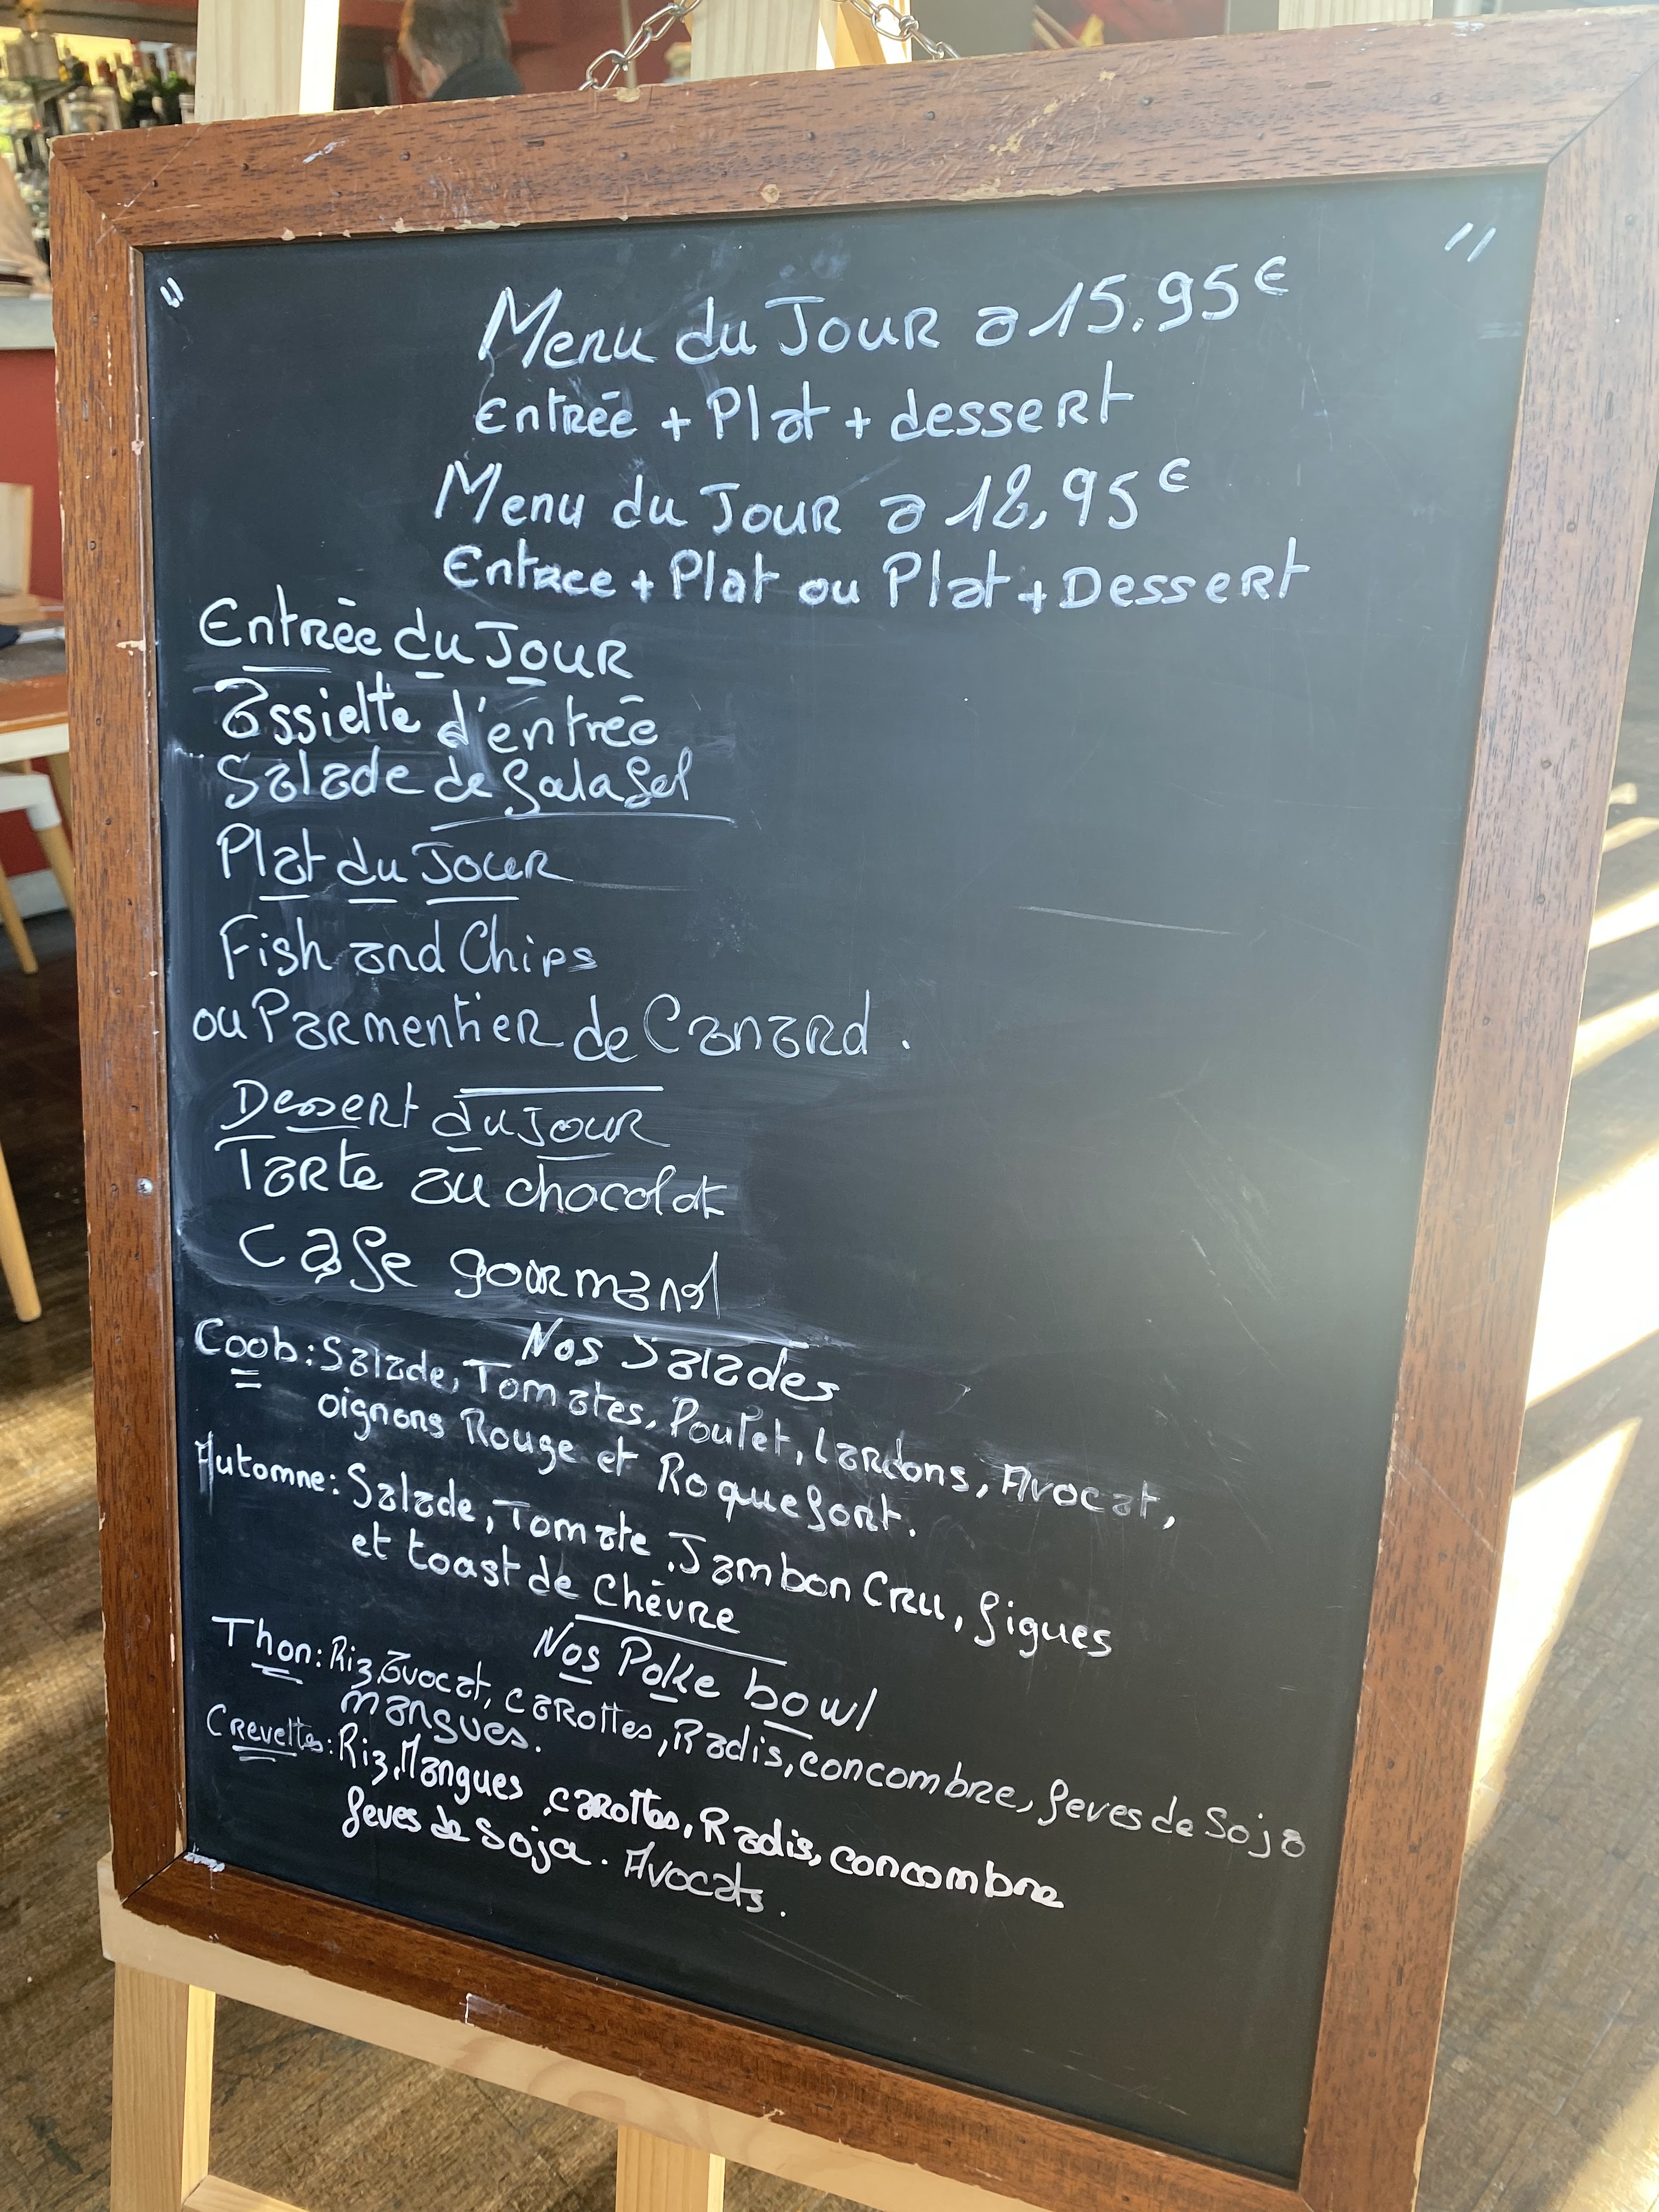 " "
Menu du Jour a 15.95€
Entrée + Plat + dessert
Menu du Jour a 18,95€
Entrace + Plat ou Plat + Dessert
Entrée du Jour
assiette d'entrée
Salade de falafel
Plat du Jour
Fish and Chips
ou Parmentier de Canard.
Dessert du jour
Tarte au chocolat
Cafe gourmand
Nos Salades
Coob: Salade, Tomates, Poulet, Lardons, Avocat,
oignons Rouge et Roquefort.
Automne: Salade, Tomate, Jambon Cru, figues
et toast de Chèvre
Nos Poke bowl
Thon: Riz, avocat, carottes, Radis, concombre, feves de Soja
mangues.
Crevettes: Riz, Mangues, carottes, Radis, concombre
feves de Soja. Avocats.